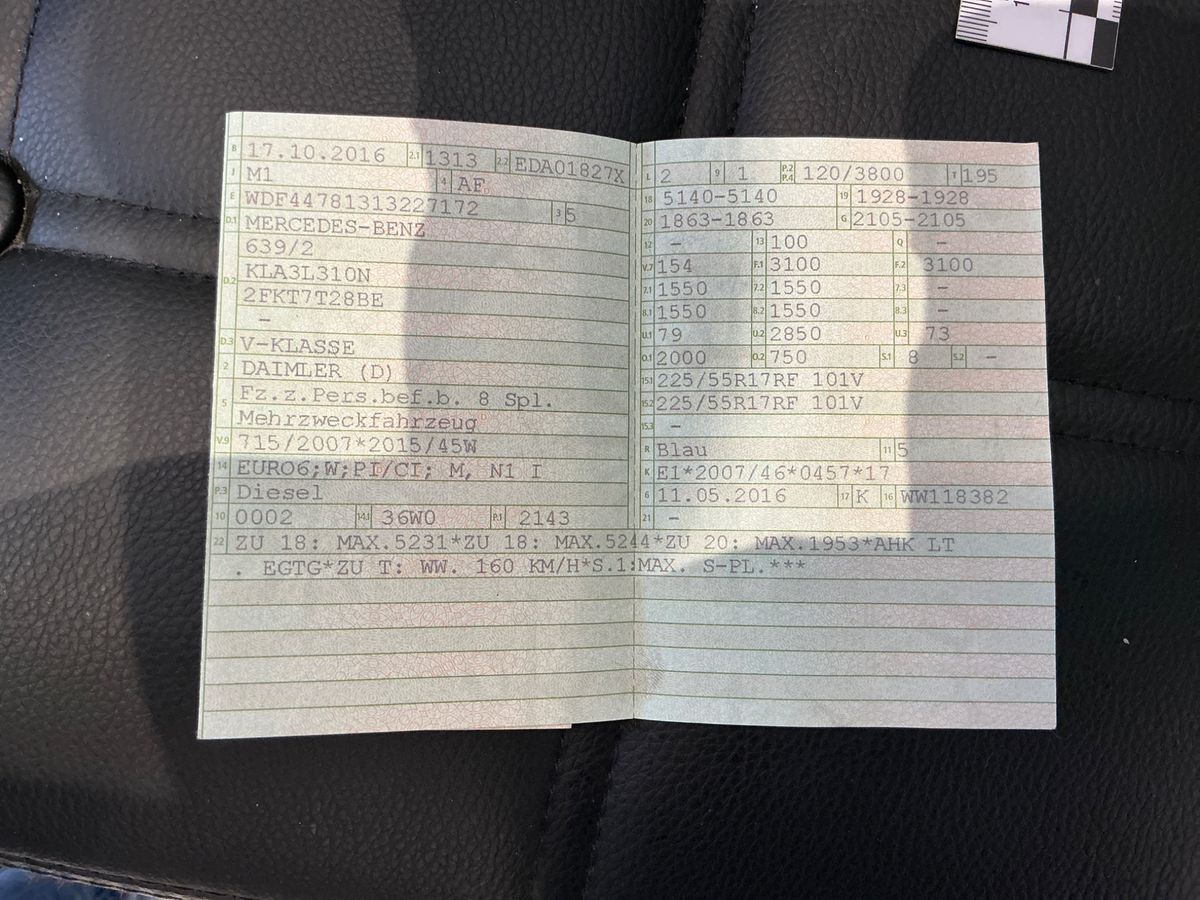 B 17.10.2016 2.1 1313 2.2 EDA01827X
J M1 4 AF
E WDF44781313227172 3 5
D.1 MERCEDES-BENZ
639/2
D.2 KLA3L310N
2FKT7T28BE
–
D.3 V-KLASSE
2 DAIMLER (D)
5 Fz.z.Pers.bef.b. 8 Spl.
Mehrzweckfahrzeug
V.9 715/2007*2015/45W
14 EURO6;W;PI/CI; M, N1 I
P.3 Diesel
10 0002 14.1 36W0 P.1 2143
L 2 9 1 P.2 P.4 120/3800 T 195
18 5140-5140 19 1928-1928
20 1863-1863 G 2105-2105
12 – 13 100 Q –
V.7 154 F.1 3100 F.2 3100
7.1 1550 7.2 1550 7.3 –
8.1 1550 8.2 1550 8.3 –
U.1 79 U.2 2850 U.3 73
O.1 2000 O.2 750 S.1 8 S.2 –
15.1 225/55R17RF 101V
15.2 225/55R17RF 101V
15.3 –
R Blau 11 5
K E1*2007/46*0457*17
6 11.05.2016 17 K 16 WW118382
21 –
22 ZU 18: MAX.5231*ZU 18: MAX.5244*ZU 20: MAX.1953*AHK LT
. EGTG*ZU T: WW. 160 KM/H*S.1:MAX. S-PL.***